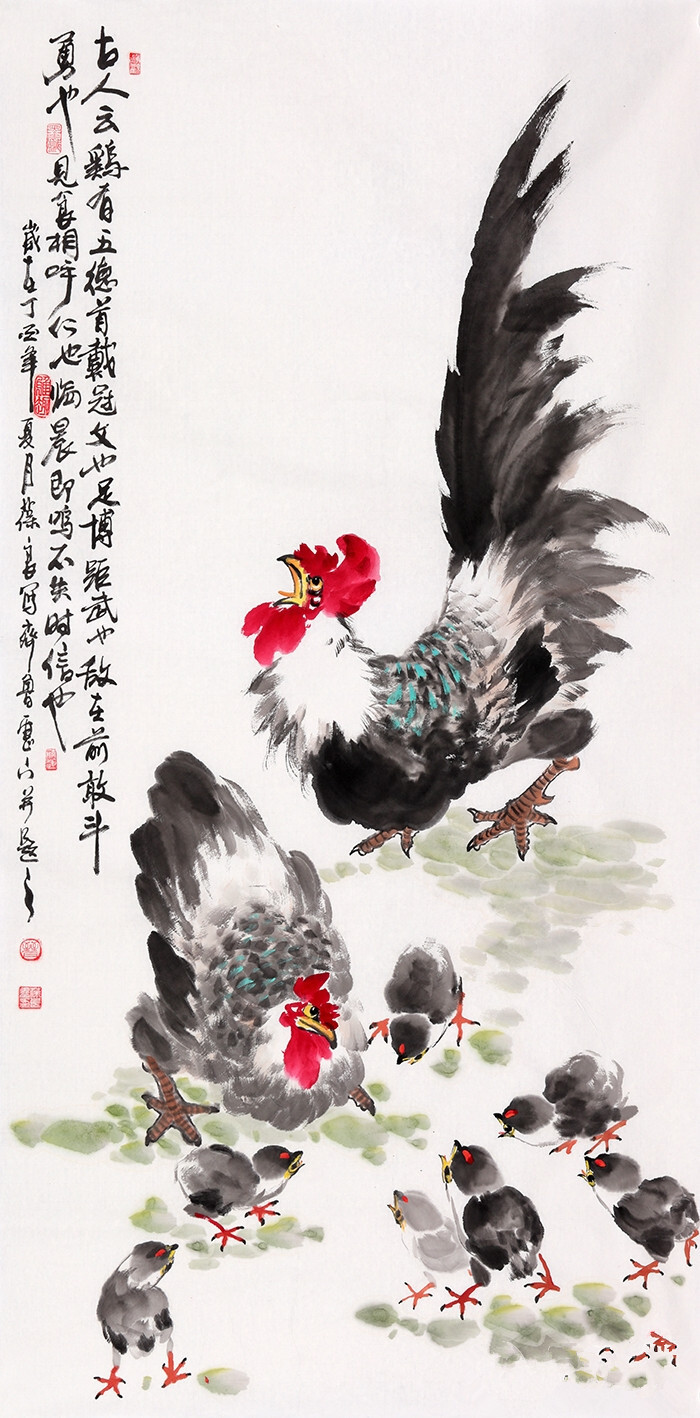 古人云鷄有五德首戴冠文也足博距武也敌在前敢斗
勇也見食相呼仁也临晨即鸣不失时信也
歲在丁酉年夏月寫齊魯并题